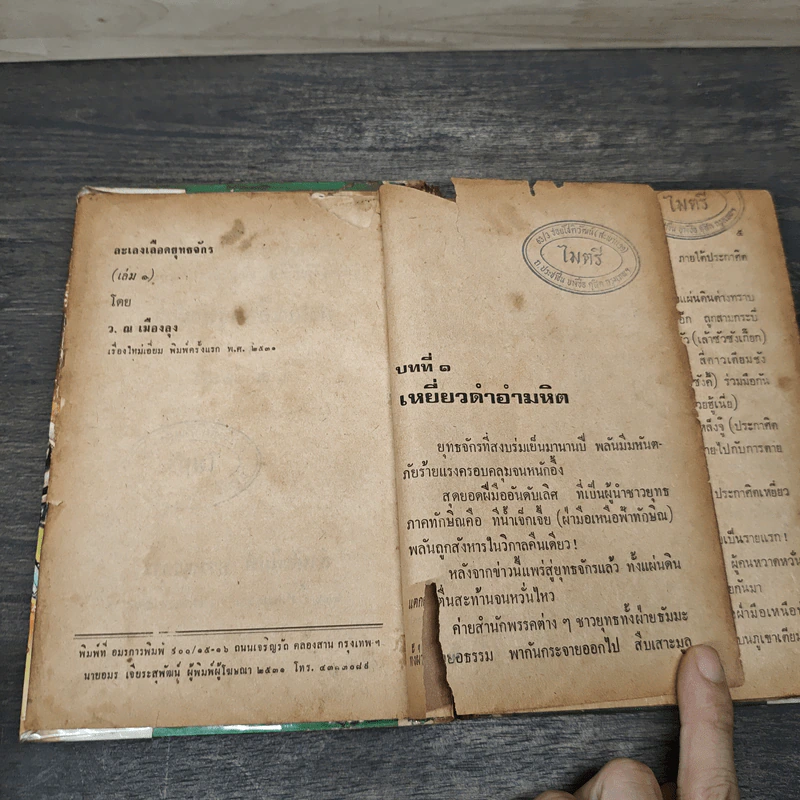 ละเลงเลือดยุทธจักร
(เล่ม ๑)
โดย
ว. ณ เมืองลุง
เรื่องใหม่เอี่ยม พิมพ์ครั้งแรก พ.ศ. ๒๕๓๑
พิมพ์ที่ อมรการพิมพ์ ๕๐๐/๑๕-๑๖ ถนนเจริญรัถ คลองสาน กรุงเทพฯ
นายอมร เจียระสุพัฒน์ ผู้พิมพ์ผู้โฆษณา ๒๕๓๑ โทร.
ไมตรี
บทที่ ๑
เหยี่ยวดำอำมหิต
ยุทธจักรที่สงบร่มเย็นมานานปี พลันมีมหันต-
ภัยร้ายแรงครอบคลุมจนหนักอึ้ง
สุดยอดฝีมืออันดับเลิศ ที่เป็นผู้นำชาวยุทธ
ภาคทักษิณคือ ทีน้ำเจ็กเจี้ย (ฝ่ามือเหนือฟ้าทักษิณ)
พลันถูกสังหารในวิกาลคืนเดียว!
หลังจากข่าวนี้แพร่สู่ยุทธจักรแล้ว ทั้งแผ่นดิน
ตื่นสะท้านจนหวั่นไหว
ค่ายสำนักพรรคต่าง ๆ ชาวยุทธทั้งฝ่ายธัมมะ
อธรรม พากันกระจายออกไป สืบเสาะมูล
ไมตรี
๕
ภายใต้ประกาศิต
แผ่นดินต่างทราบ
ลูกสาบกระบี่
(เล้าชัวซังเกี๊ยก)
สี่ดาวเดือนซัง
ร่วมมือกัน
(ประกาศิต
ายไปกับการตาย
ประกาศิตเหยี่ยว
เป็นรายแรก!
ผู้คนหวาดหวั่น
อกันมา
ฝ่ามือเหนือฟ้า
บนภูเขาเตียม